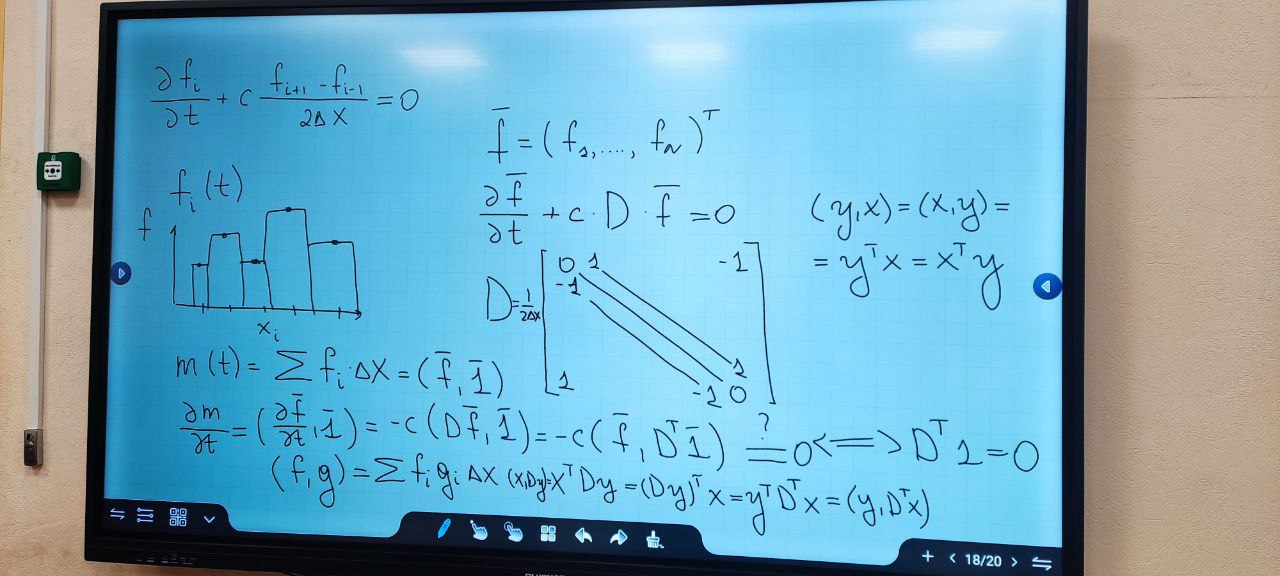 ∂fᵢ/∂t + c (fᵢ₊₁ - fᵢ₋₁)/(2Δx) = 0
fᵢ(t)
f
xᵢ
f̄ = (f₁, ...., f_N)ᵀ
∂f̄/∂t + c · D · f̄ = 0
D = 1/(2Δx)
[ 0 1 -1
-1
1
1 -1 0 ]
(y,x) = (x,y) =
= yᵀx = xᵀy
m(t) = Σ fᵢ · Δx = (f̄, 1̄)
∂m/∂t = (∂f̄/∂t, 1̄) = -c (Df̄, 1̄) = -c (f̄, Dᵀ1̄) =? 0 <=> Dᵀ1 = 0
(f, g) = Σ fᵢ gᵢ Δx (x,Dy) = xᵀDy = (Dy)ᵀx = yᵀDᵀx = (y, Dᵀx)
18/20